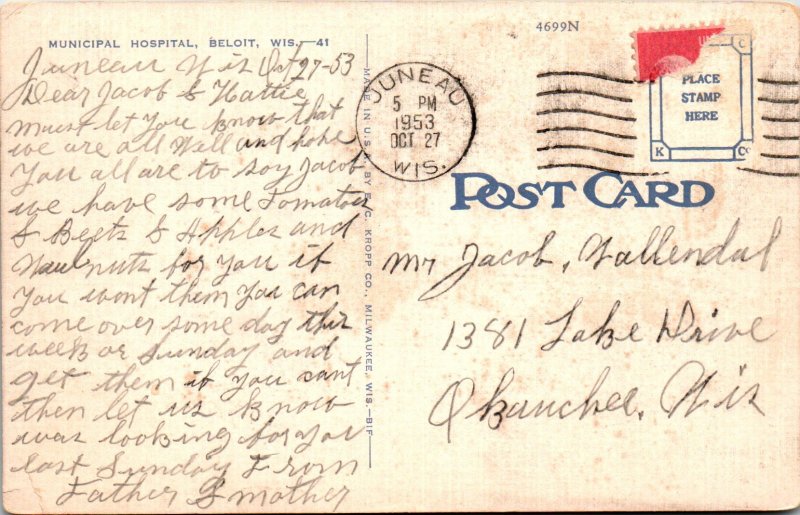 MUNICIPAL HOSPITAL, BELOIT, WIS.—41
Juneau Wis Oct 27-53
Dear Jacob & Hattie
must let you know that
we are all Well and hope
You all are to soy Jacob
we have some tomatoes
& Beets & Apples and
Naul nuts for you if
You wont them You can
come over some day this
week or Sunday and
get them if you cant
then let us know
was looking for you
last Sunday From
Father & mother
MADE IN U.S.A. BY E.C. KROPP CO., MILWAUKEE, WIS.—BIF
4699N
JUNEAU
5 PM
1953
OCT 27
WIS.
PLACE
STAMP
HERE
C
K
Co
POST CARD
Mr Jacob, Wallendal
1381 Lake Drive
Okauchee, Wis